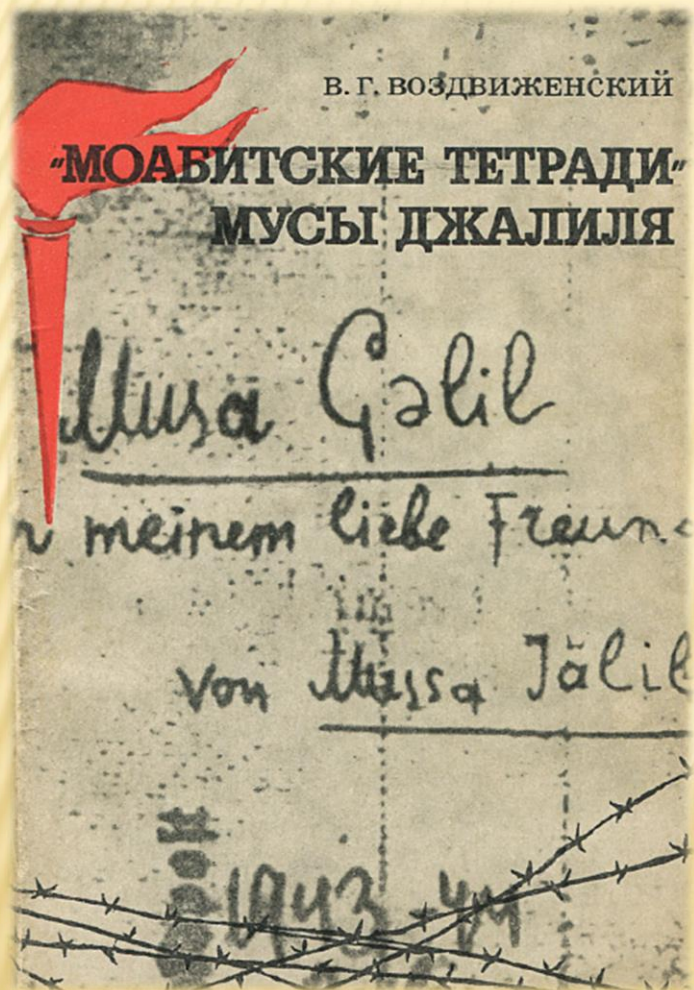 В. Г. ВОЗДВИЖЕНСКИЙ
"МОАБИТСКИЕ ТЕТРАДИ"
МУСЫ ДЖАЛИЛЯ
Musa Çəlil
meinem liebe Freun
von Mussa Jälil
1943-44